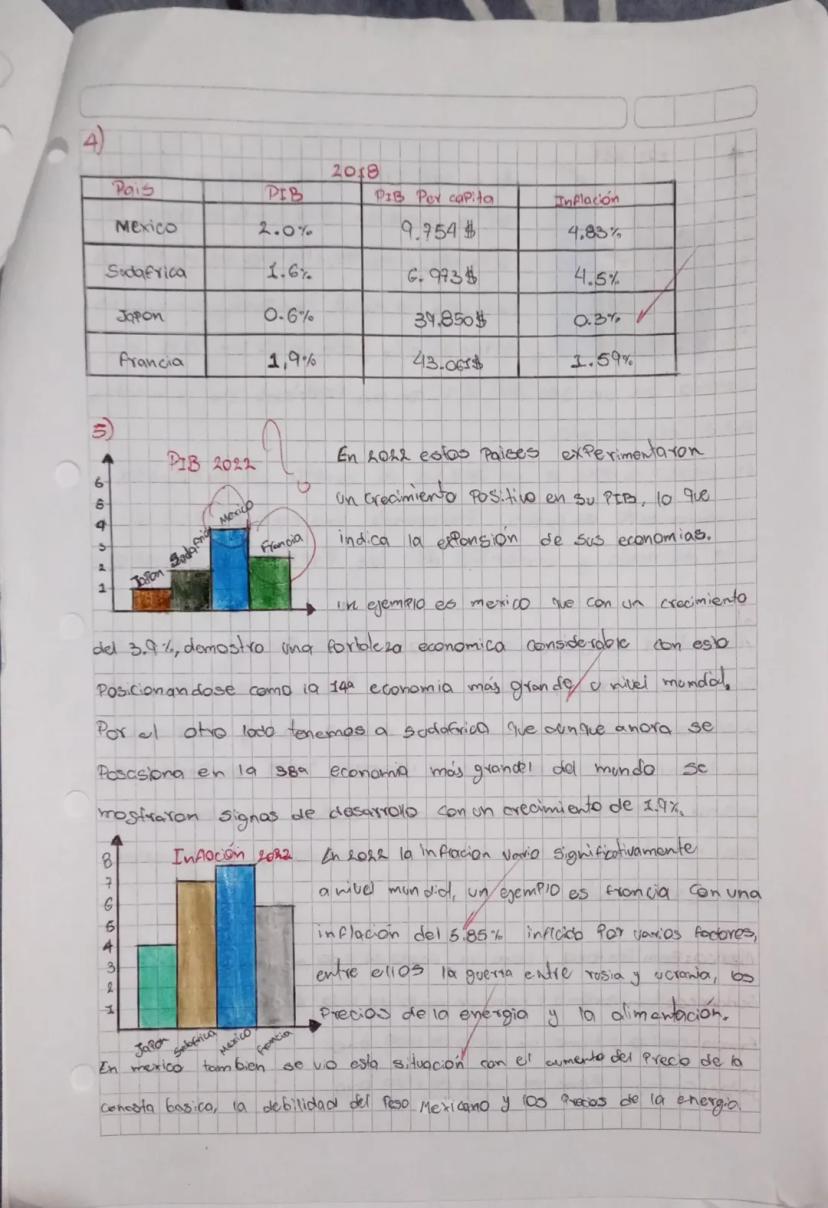 4)
2018
Pais PIB PIB Per capita Inflación
Mexico 2.0% 9.754 $ 4,83%
Sudafrica 1.6% 6.973 $ 4.5%
Japon 0.6% 39.850$ 0.3%
francia 1,9% 43.061$ 1.59%
5)
PIB 2022
6
5
4
3
2
1
Japon Sudafrica Mexico Francia
En 2022 estos Paises experimentaron
un crecimiento Positivo en su PIB, lo que
indica la expansión de sus economias.
un ejemplo es mexico que con un crecimiento
del 3.9%, demostro una fortaleza economica considerable con esto
Posicionandose como la 14ª economia más grande a nivel mundial.
Por el otro lado tenemos a sudafrica que aunque ahora se
Poscsiona en la 38a economia más grandel del mundo se
mostraron signas de desarrollo con un crecimiento de 1.9%.
Inflación 2022
8
7
6
5
4
3
2
1
Japon Sudafrica Mexico francia
En 2022 la inflacion vario significativamente
a nivel mundial, un ejemplo es francia con una
inflación del 5.85% inflcido Por varios factores,
entre ellos la guerra entre rusia y ucrania, los
Precios de la energia y la alimentación.
En mexico tambien se vio esta situación con el aumento del Precio de la
canasta basica, la debilidad del Peso Mexicano y los Precios de la energia.